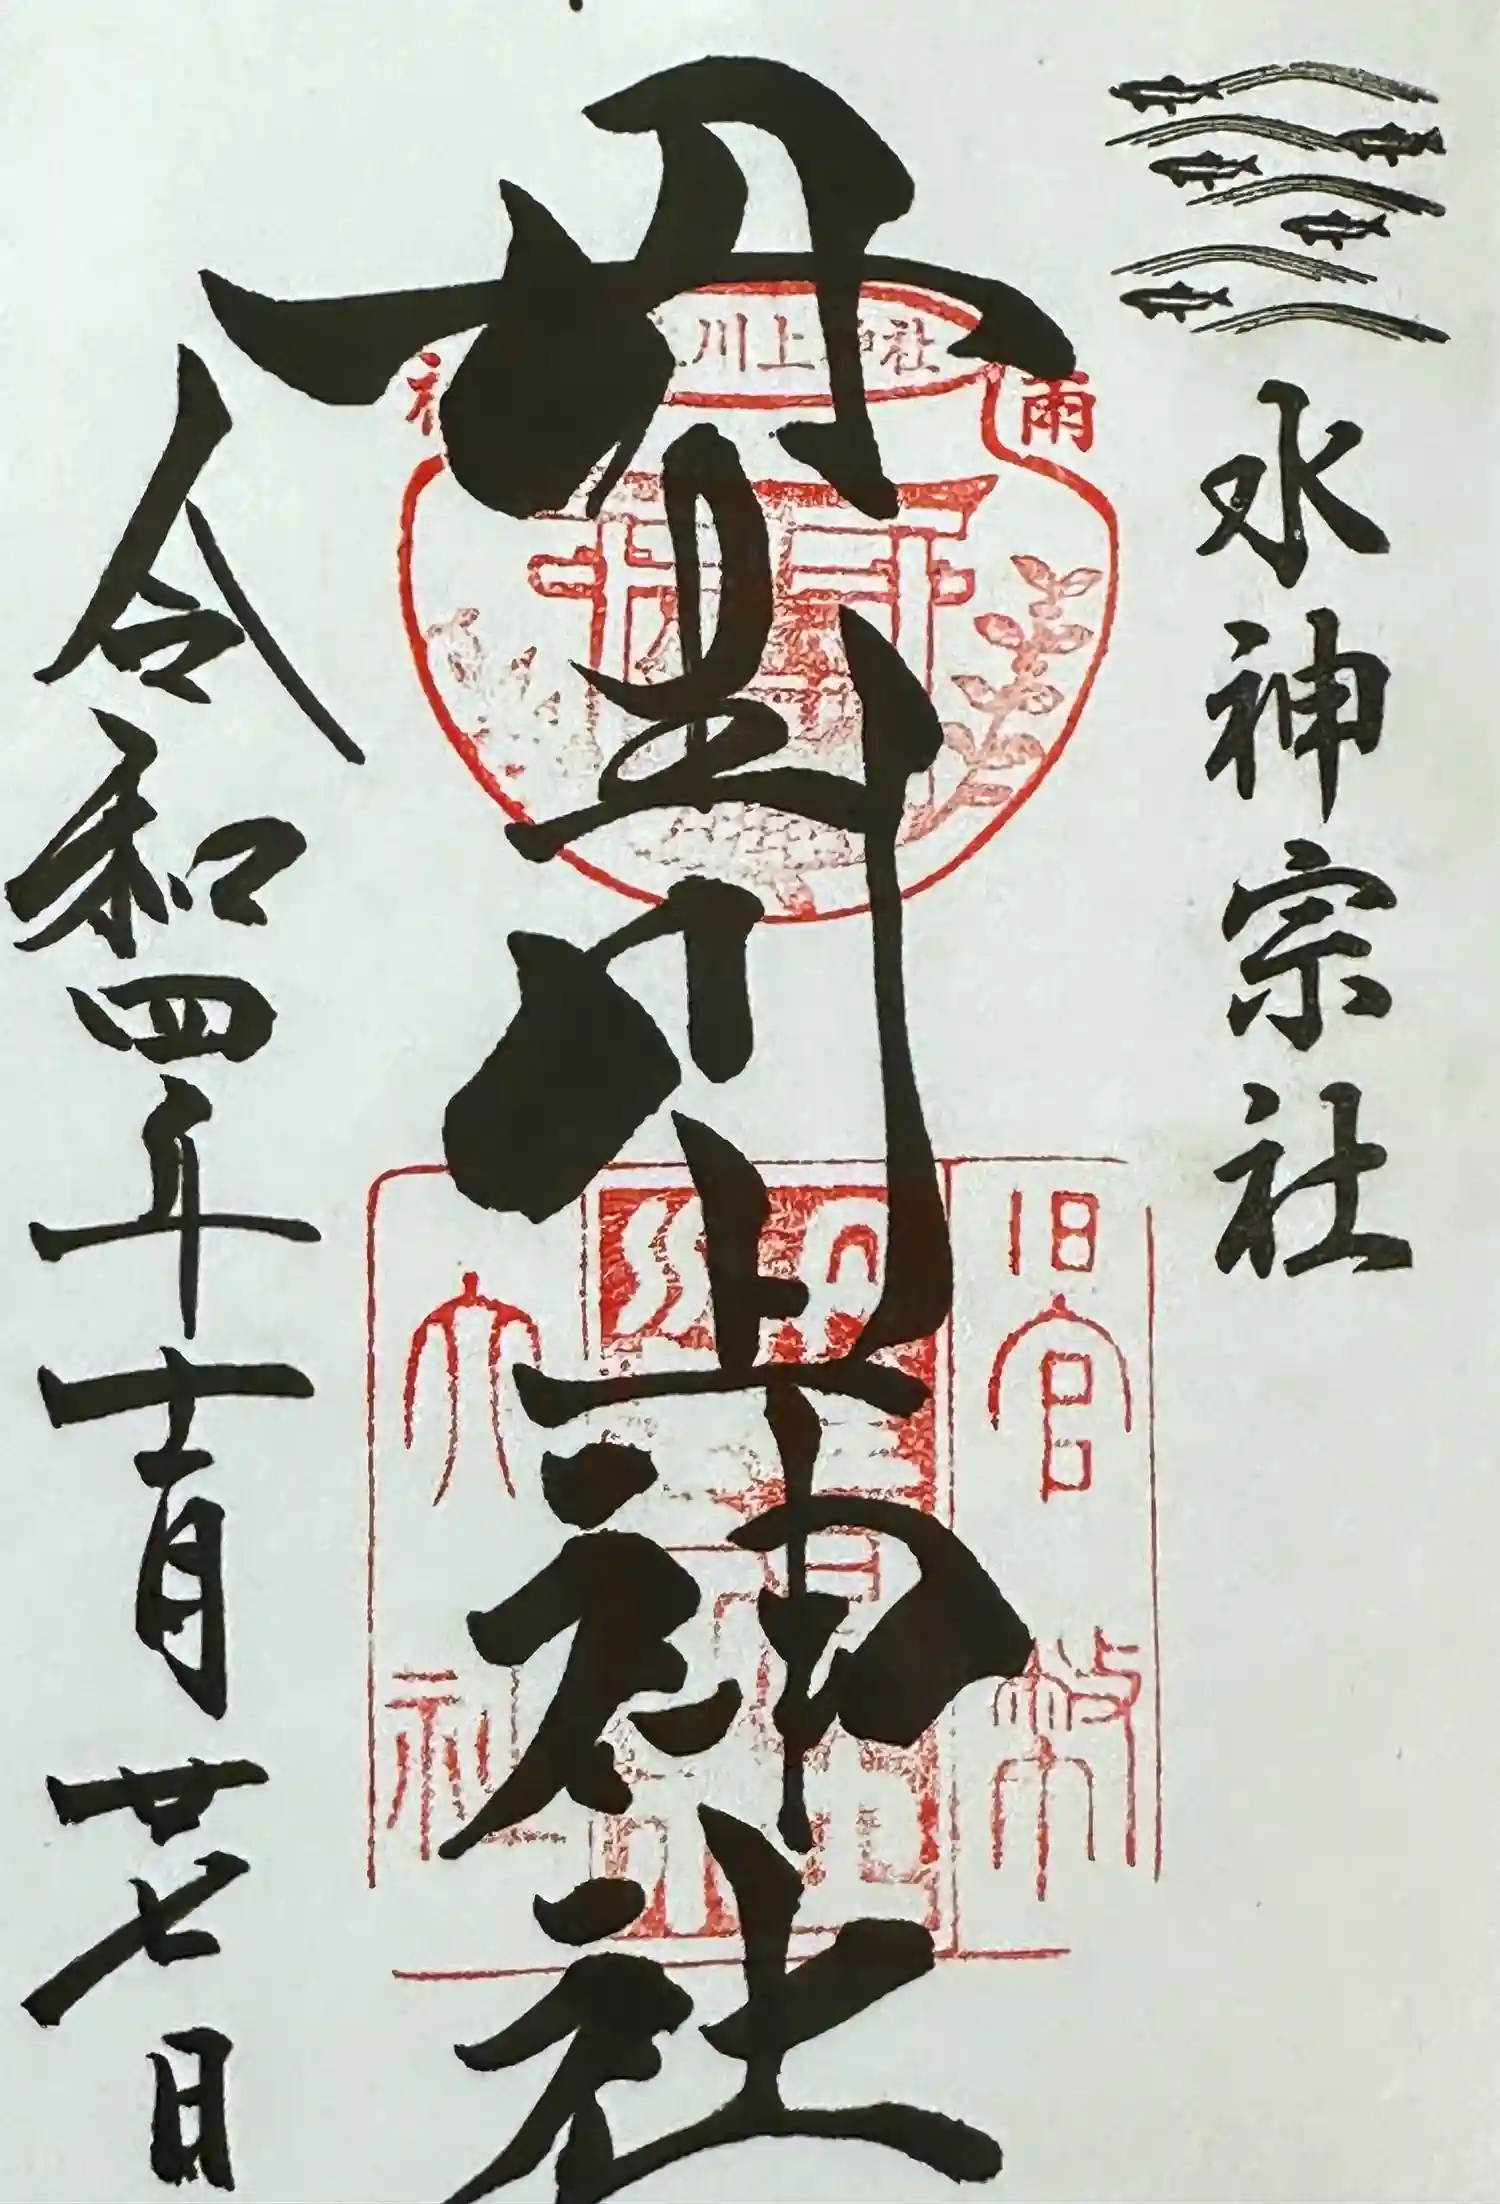 水神宗社
丹生川上神社
令和四年十一月廿七日
川上神社
雨
旧官幣
大社